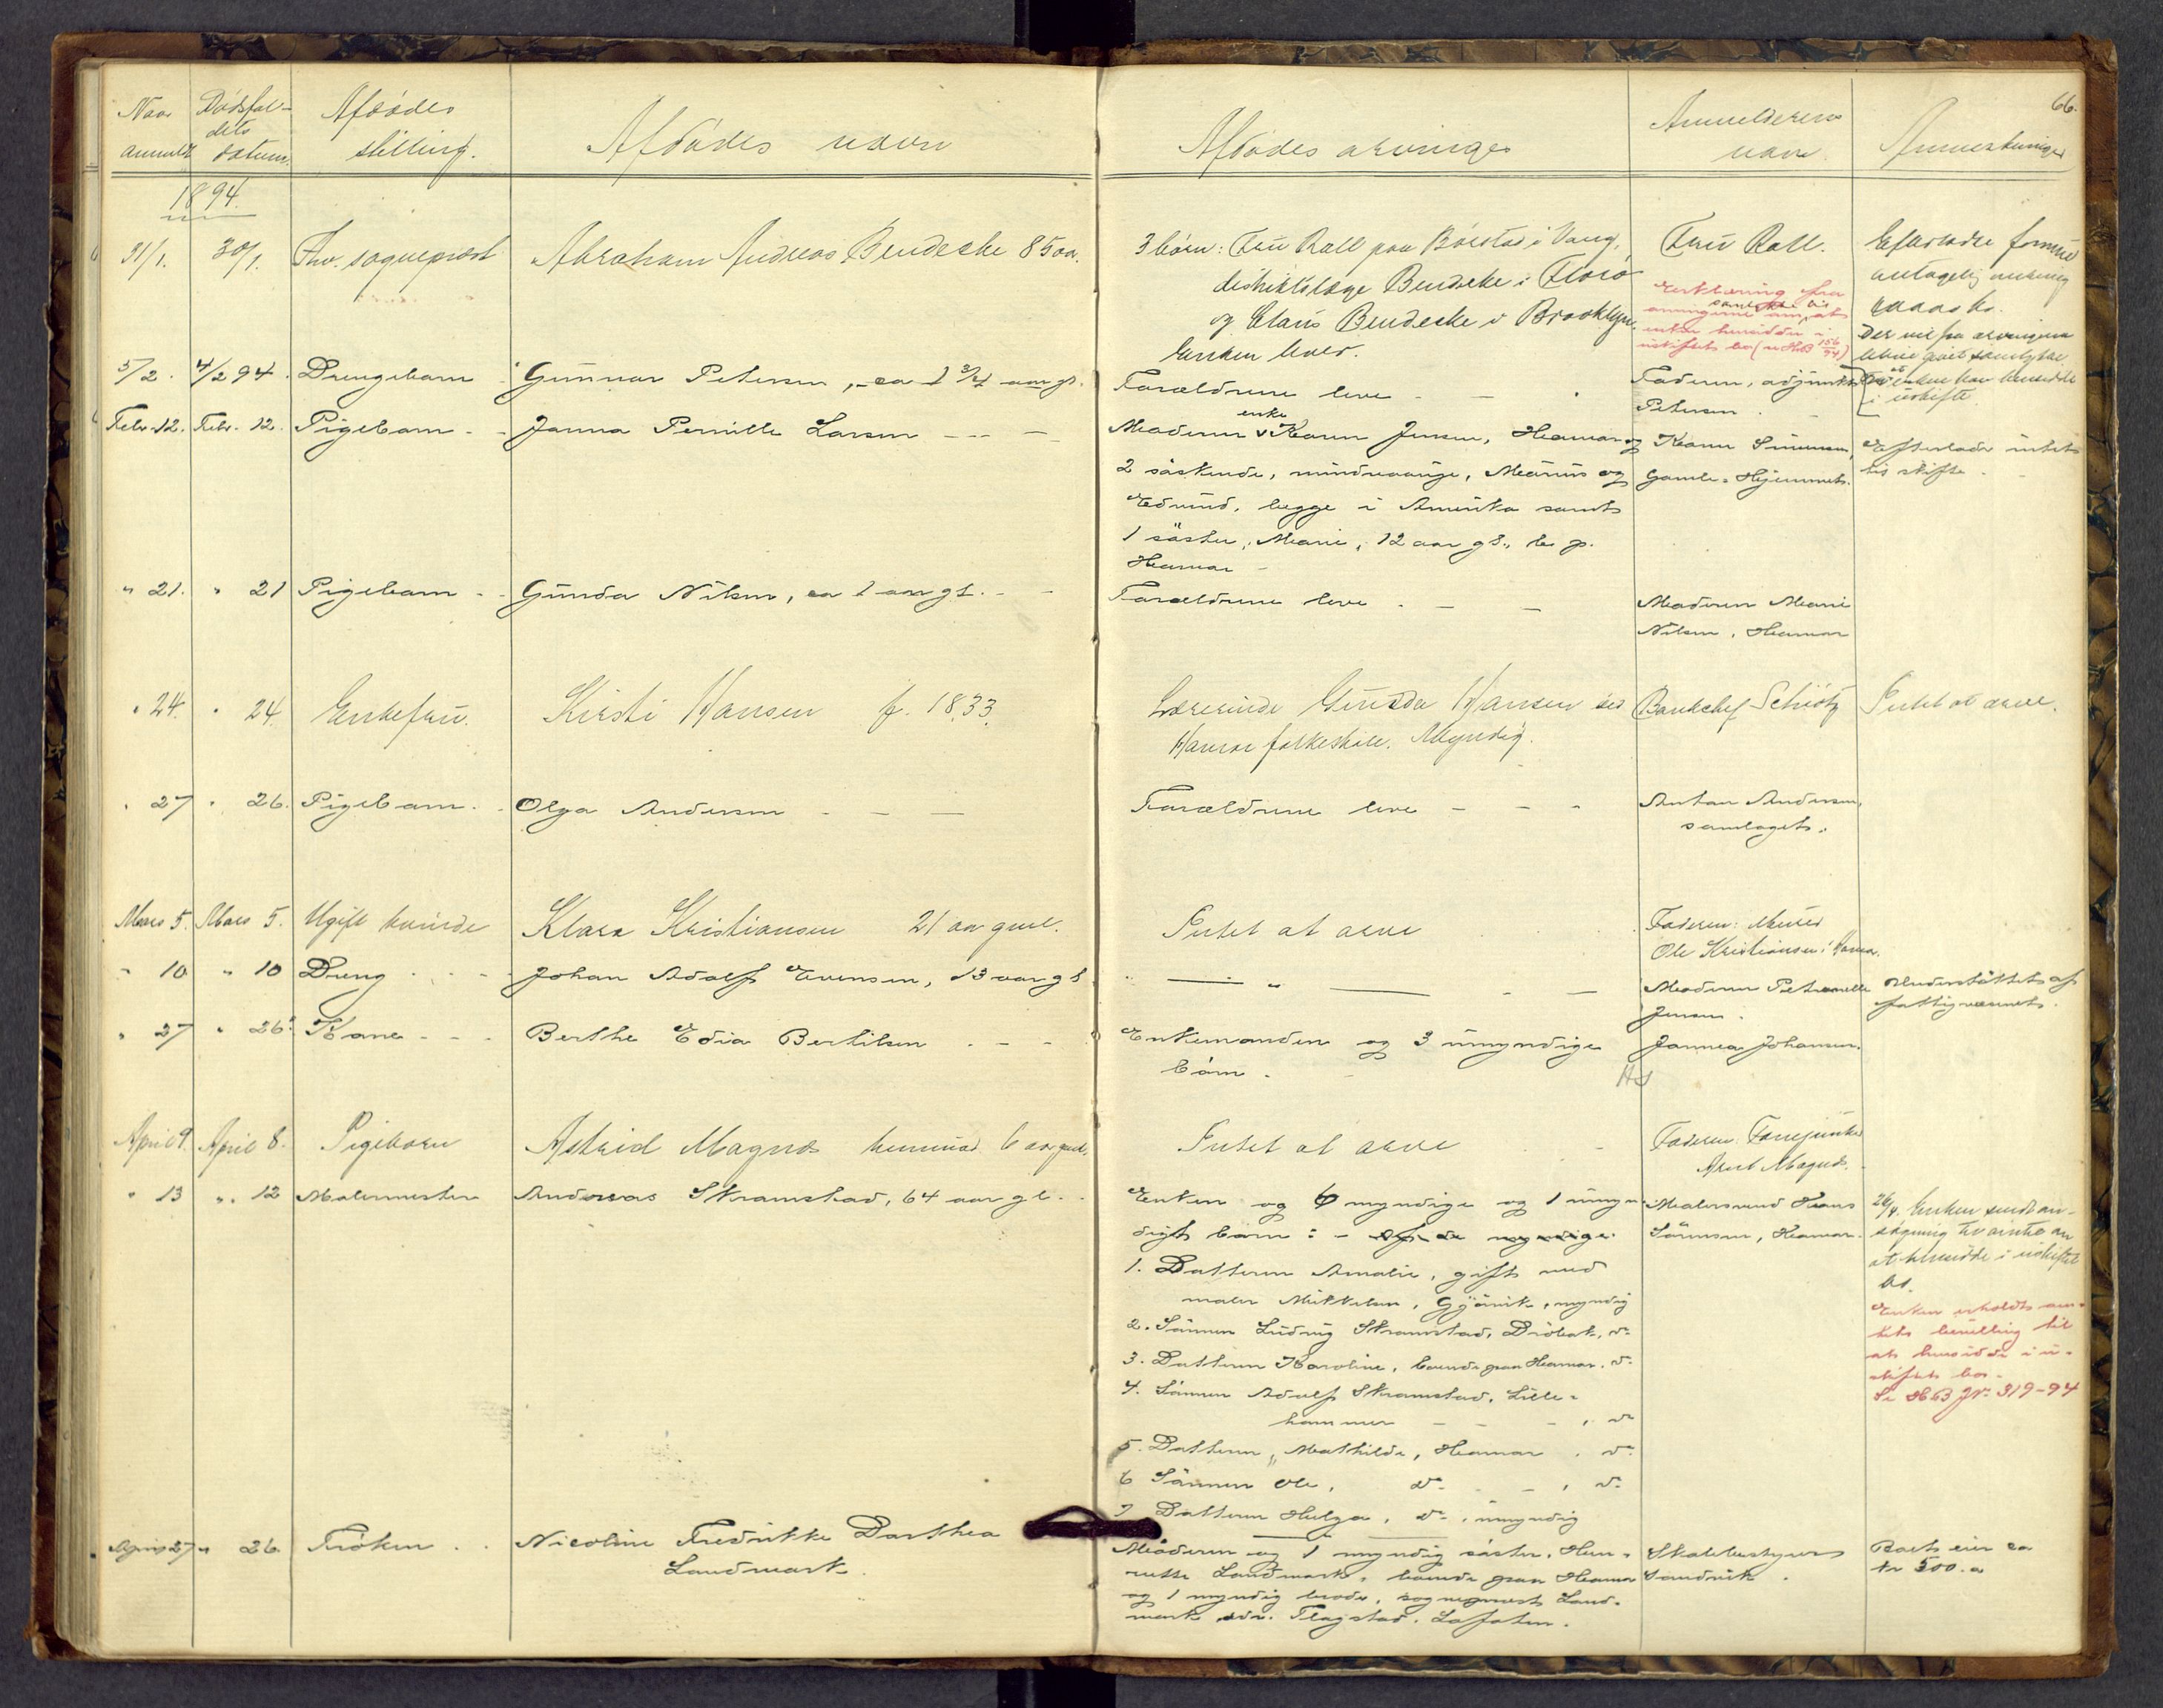 66.
Naar anmeldt
Dödsfal-
dets
datum.
Afdödes
stilling.
Afdödes navn
Afdödes arvinger
Anmelderens
navn.
Anmerkninger
1894.
31/1. 30/1. Fhv. sogneprest Abraham Andreas Bendeke 85 aar.
3 börn: Fru Rall paa Börstad i Vang,
distriktslæge Bendeke i Florö
og Claus Bendeke i Brooklyn.
Enken lever.
Fru Rall.
Erklæring fra
arvingerne om, at
enken hensidder i
uskiftet bo (u HB 156/94)
Efterlader formue
antagelig
Der vil fra arvingerne
blive givet samtykke
at enken kan hensidde
i uskifte.
5/2. 4/2 94. Drengebarn Gunnar Petersen, ca 1 3/4 aar gl.
Forældrene leve
Faderen, adjunkt
Petersen.
Febr. 12. Febr. 12. Pigebarn Janna Pernille Larsen
Moderen enke Karen Jensen, Hamar og
2 söskende, mindreaarige, Marius og
Edvind, begge i Amerika samt
1 söster, Marie, 12 aar gl., bo p.
Hamar
Karen Simensen,
Gamle-Hjemmet.
Efterlader intet
til skifte.
" 21. " 21 Pigebarn Gunda Nilsen, ca 1 aar gl.
Forældrene leve
Moderen Marie
Nilsen, Hamar
" 24. " 24. Enkefru. Kirsti Hansen f. 1833.
Lærerinde Gunda Hansen ved
Hamar folkeskole. Myndig.
Bankchef Schiötz
Intet at arve.
" 27 " 26. Pigebarn. Olga Andersen
Forældrene leve
Anton Andersen,
samlaget.
Mars 5. Mars 5. Ugift kvinde Klara Kristiansen 21 aar gml.
Intet at arve
Faderen: Murer
Ole Kristiansen, Hamar.
" 10 " 10 Dreng Johan Adolf Evensen, 13 aar gl
— " —
Moderen Petronelle
Jensen.
Understöttet af
fattigvæsenet.
" 27 " 26. Kone Berthe Edia Bertilsen
Enkemanden og 3 umyndige
börn.
Jannea Johansen.
April 9. April 8. Pigebarn Astrid Magnus 6 aar gml.
Intet at arve
Faderen: Forrejunker
Magnus.
" 13 " 12 Malermester Andreas Skramstad, 64 aar gl.
Enken og 6 myndige og 1 umyn-
digt barn: - af de myndige
1. Datteren Amalie, gift med
maler Mikkelsen, Gjövik, myndig
2. Sönnen Ludvig Skramstad, Dröbak, do
3. Datteren Karoline, boende paa Hamar. do
4. Sönnen Adolf Skramstad, Lille-
hammer, do
5. Datteren, Mathilde, Hamar, do
6 Sönnen Ole, do, do
7 Datteren Helga, do, umyndig
Malersvend Hans
Sörensen, Hamar.
26/4. Enken sendt an-
sögning til amtet om
at hensidde i uskiftet
bo.
Enken erholdt am-
tets bevilling til
at hensidde i u-
skiftet bo.
Se HB J No 319-94
April 27 " 26. Fröken Nicoline Fredrikke Dorthea
Landmark.
Moderen og 1 myndig söster, Hen-
riette Landmark, boende paa Hamar
og 1 myndig broder, sogneprest Land-
mark, adr. Flagstad. Lofoten.
Skolebestyrer
Sandvik.
Boets eier ca
kr 500.